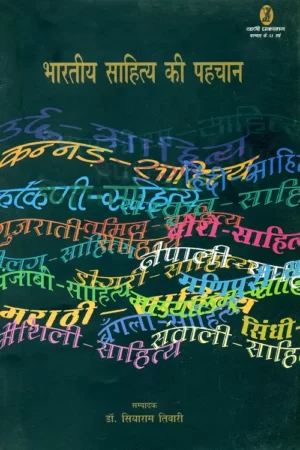 वाणी प्रकाशन
भारतीय साहित्य की पहचान
उर्दू-साहित्य
कन्नड-साहित्य
हिंदी-साहि
कोंकणी-साहित्य
गुजराती
तमिल
बोरो-साहित्य
नेपाली-सा
पंजाबी-साहित्य
डोगरी-साहित्य
मणिपुरी
मराठी-साहित्य
बंगला-साहि
सिंधी-
मैथिली-साहित्य
संताली-साहि
सम्पादक
डॉ. सियाराम तिवारी